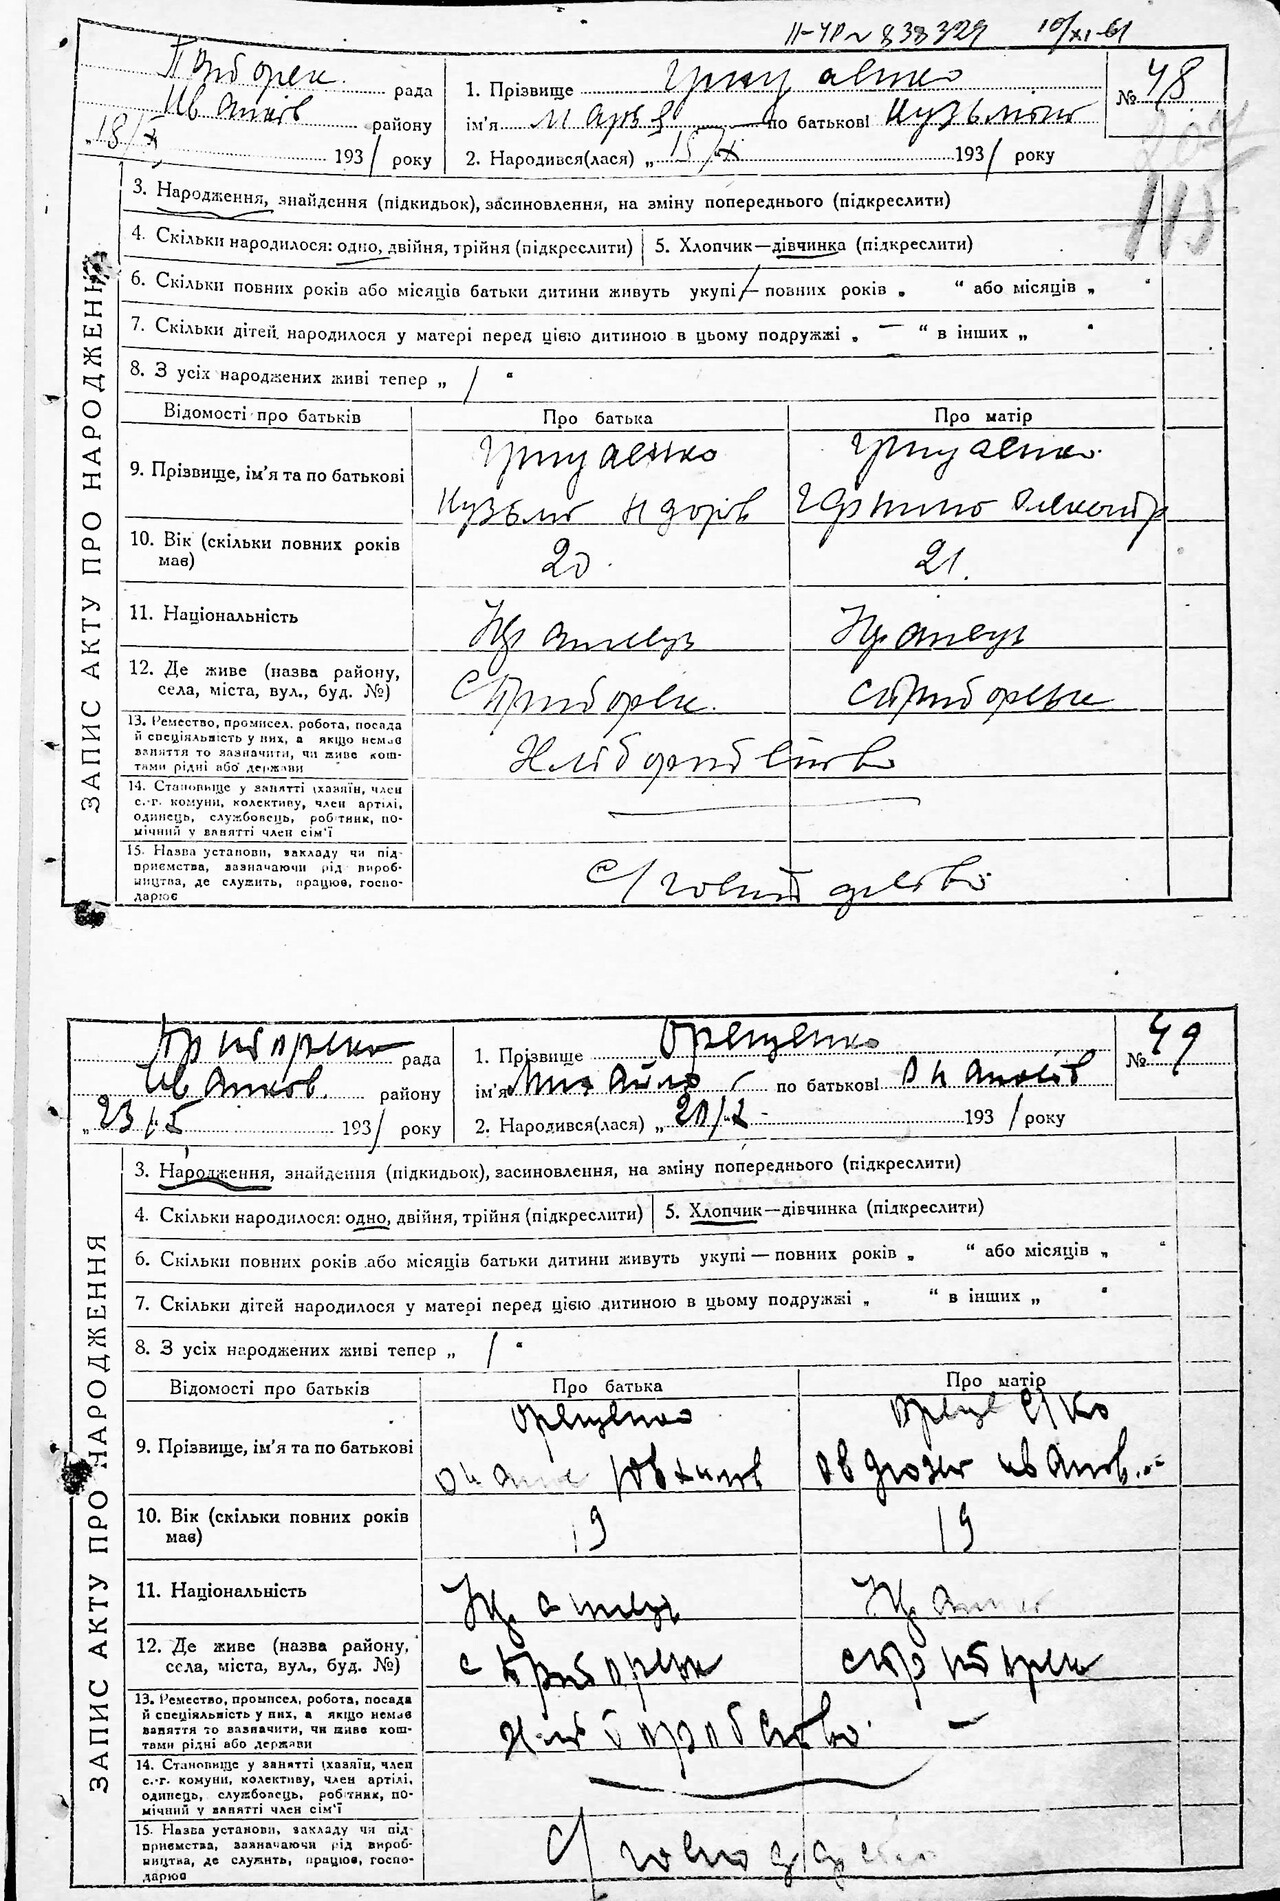 II-УР № 838329 10/XI-61
Приборск. рада
Іванків району
„18/X 1931 року
1. Прізвище Грицаенко
ім'я Марія по батькові Кузьмівна
2. Народився(лася) „ 15/X 1931 року
№ 48
207
115
3. Народження, знайдення (підкидьок), засиновлення, на зміну попереднього (підкреслити)
4. Скільки народилося: одно, двійня, трійня (підкреслити)
5. Хлопчик—дівчинка (підкреслити)
6. Скільки повних років або місяців батьки дитини живуть укупі — повних років „ “ або місяців „ “
7. Скільки дітей народилося у матері перед цією дитиною в цьому подружжі „ — “ в інших „ “
8. З усіх народжених живі тепер „ / “
Відомості про батьків
Про батька
Про матір
9. Прізвище, ім'я та по батькові
Грицаенко
Кузьма
Грицаенко
Олександр
10. Вік (скільки повних років має)
20.
21.
11. Національність
Українець
Українець
12. Де живе (назва району, села, міста, вул., буд. №)
с Приборск.
с Приборськ
13. Ремество, промисел, робота, посада
й спеціяльність у них, а якщо немає
заняття то зазначити, чи живе кош-
тами рідні або держави
Хліборобство
14. Становище у занятті (хазяїн, член
с.-г. комуни, колективу, член артілі,
одинець, службовець, робітник, по-
мічний у занятті член сім'ї
15. Назва установи, закладу чи під-
приємства, зазначаючи рід вироб-
ництва, де служить, працює, госпо-
дарює
с/господарство
ЗАПИС АКТУ ПРО НАРОДЖЕННЯ
Приборска рада
Іванков. району
„23/X 1931 року
1. Прізвище Орещенко
ім'я Михайло по батькові Опанасів
2. Народився(лася) „ 20/X 1931 року
№ 49
3. Народження, знайдення (підкидьок), засиновлення, на зміну попереднього (підкреслити)
4. Скільки народилося: одно, двійня, трійня (підкреслити)
5. Хлопчик—дівчинка (підкреслити)
6. Скільки повних років або місяців батьки дитини живуть укупі — повних років „ “ або місяців „ “
7. Скільки дітей народилося у матері перед цією дитиною в цьому подружжі „ “ в інших „ “
8. З усіх народжених живі тепер „ / “
Відомості про батьків
Про батька
Про матір
9. Прізвище, ім'я та по батькові
Орещенко
Опанас
Орещенко
Іванов.
10. Вік (скільки повних років має)
19
19
11. Національність
Українець
12. Де живе (назва району, села, міста, вул., буд. №)
с Приборськ
с Приборск
13. Ремество, промисел, робота, посада
й спеціяльність у них, а якщо немає
заняття то зазначити, чи живе кош-
тами рідні або держави
Хліборобство. —
14. Становище у занятті (хазяїн, член
с.-г. комуни, колективу, член артілі,
одинець, службовець, робітник, по-
мічний у занятті член сім'ї
15. Назва установи, закладу чи під-
приємства, зазначаючи рід вироб-
ництва, де служить, працює, госпо-
дарює
ЗАПИС АКТУ ПРО НАРОДЖЕННЯ